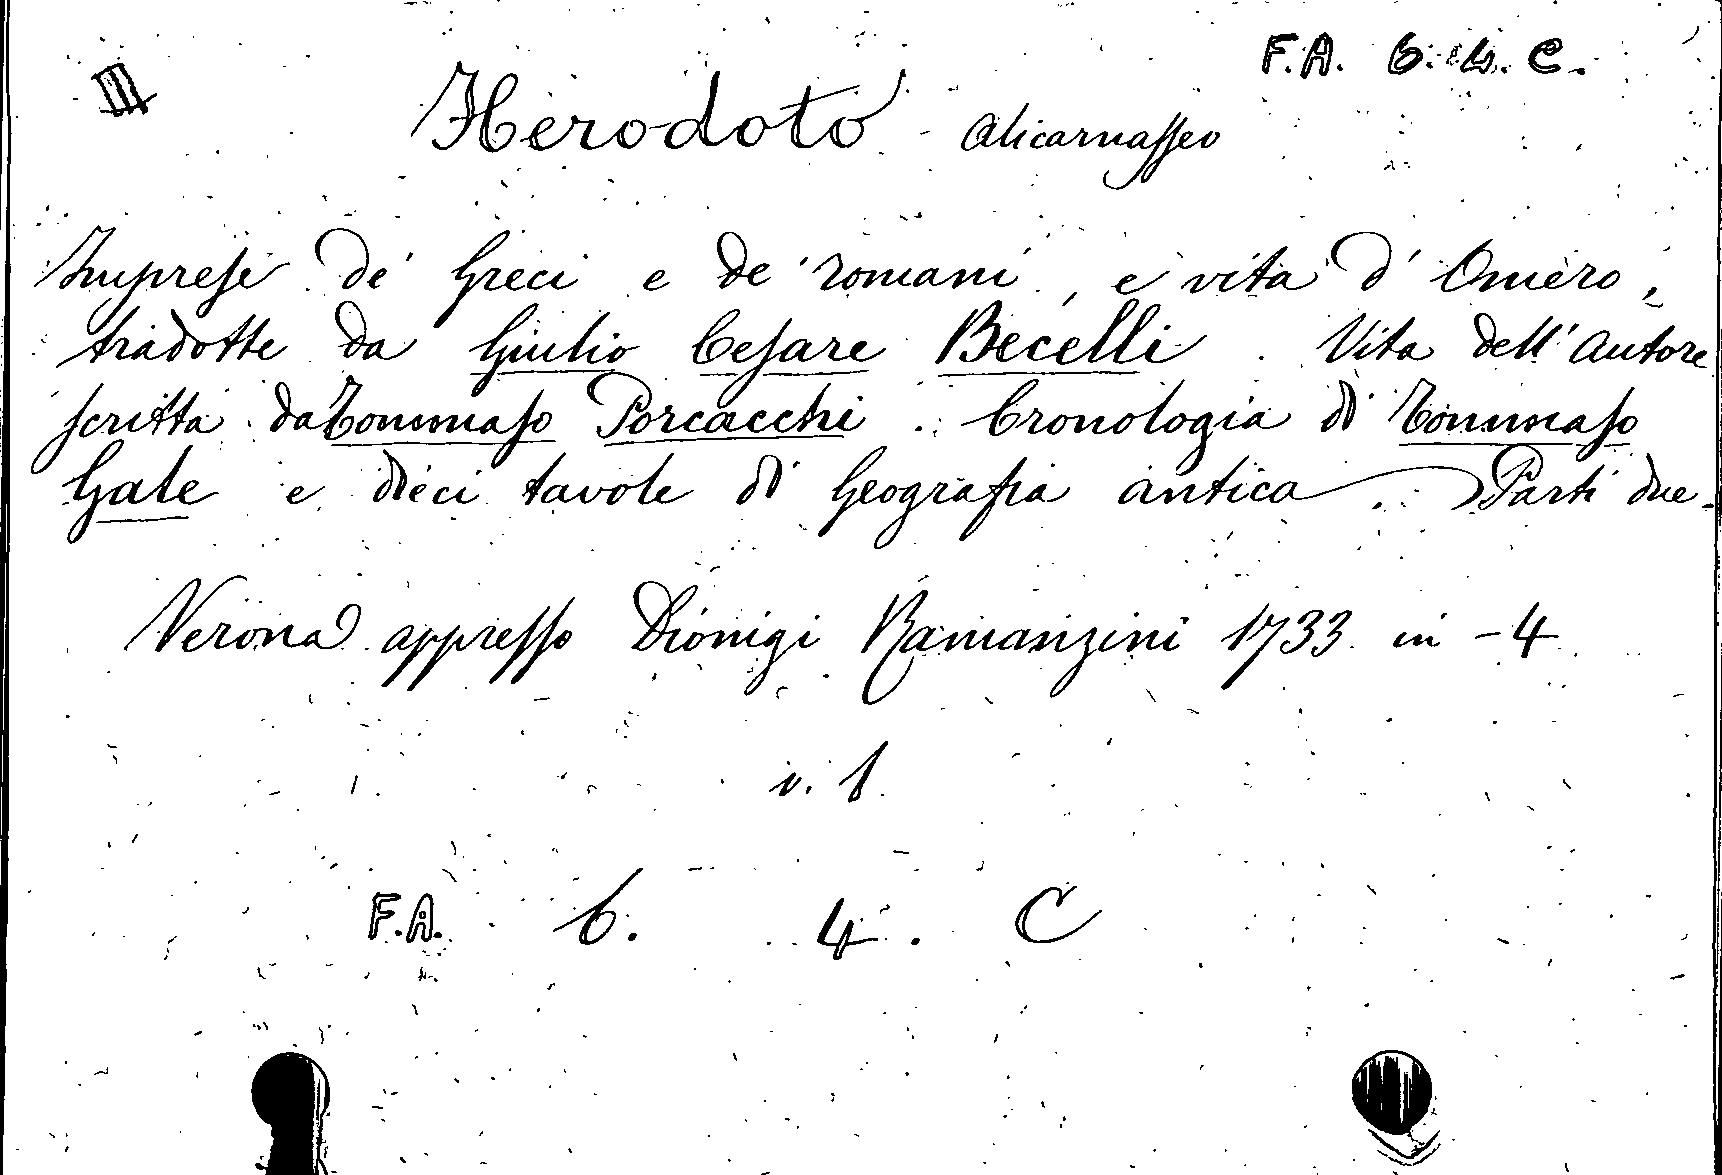 F.A. 6. 4. C.
III
Herodoto Alicarnasseo
Imprese de' Greci e de' romani, e vita d' Omero,
tradotte da Giulio Cesare Becelli. Vita dell' autore
scritta da Tommaso Porcacchi. Cronologia di Tommaso
Gale e dieci tavole di Geografia antica. Parti due.
Verona appresso Dionigi Ramanzini 1733 in-4
v. 1
F.A. 6. 4. C